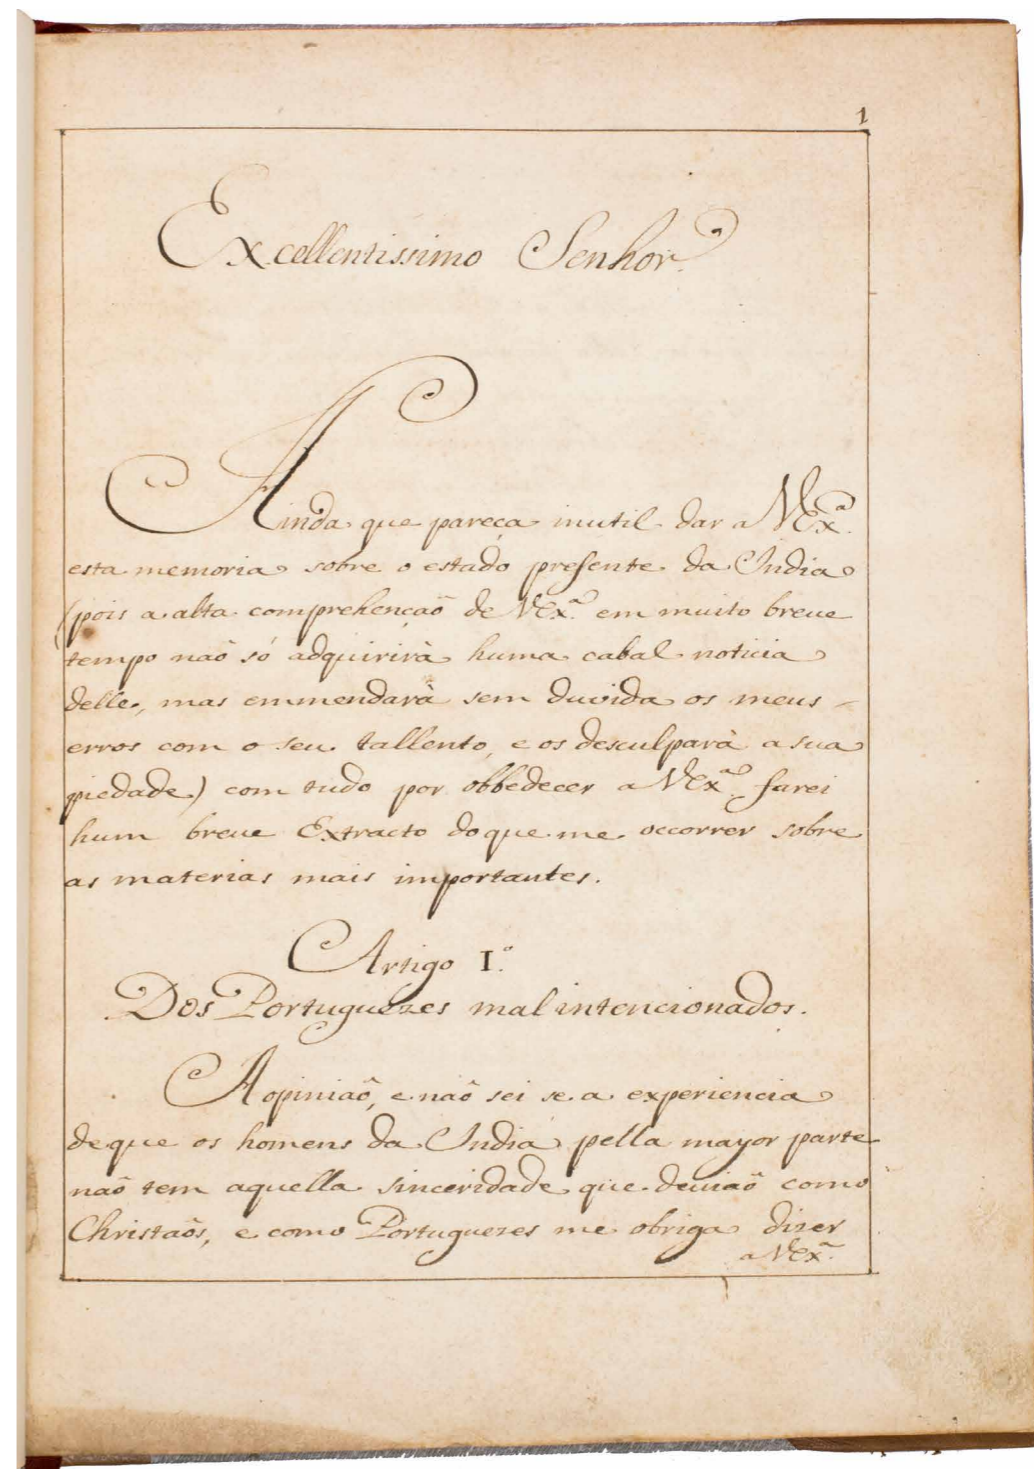 1
Excellentissimo Senhor.
Ainda que pareça inutil dar a VEx.ª
esta memoria sobre o estado presente da India
(pois a alta comprehençaõ de VEx.ª em muito breue
tempo naõ só adquirirà huma cabal noticia
delle, mas emmendarà sem duvida os meus
erros com o seu tallento, e os desculparà a sua
piedade) com tudo por obbedecer a VEx.ª farei
hum breue Extracto do que me occorrer sobre
as materias mais importantes.
Artigo I.º
Dos Portuguezes mal intencionados.
A opiniaõ, e naõ sei se a experiencia
de que os homens da India pella mayor parte
naõ tem aquella sinceridade que deuiaõ como
Christaõs, e como Portuguezes me obriga dizer
a VEx.ª